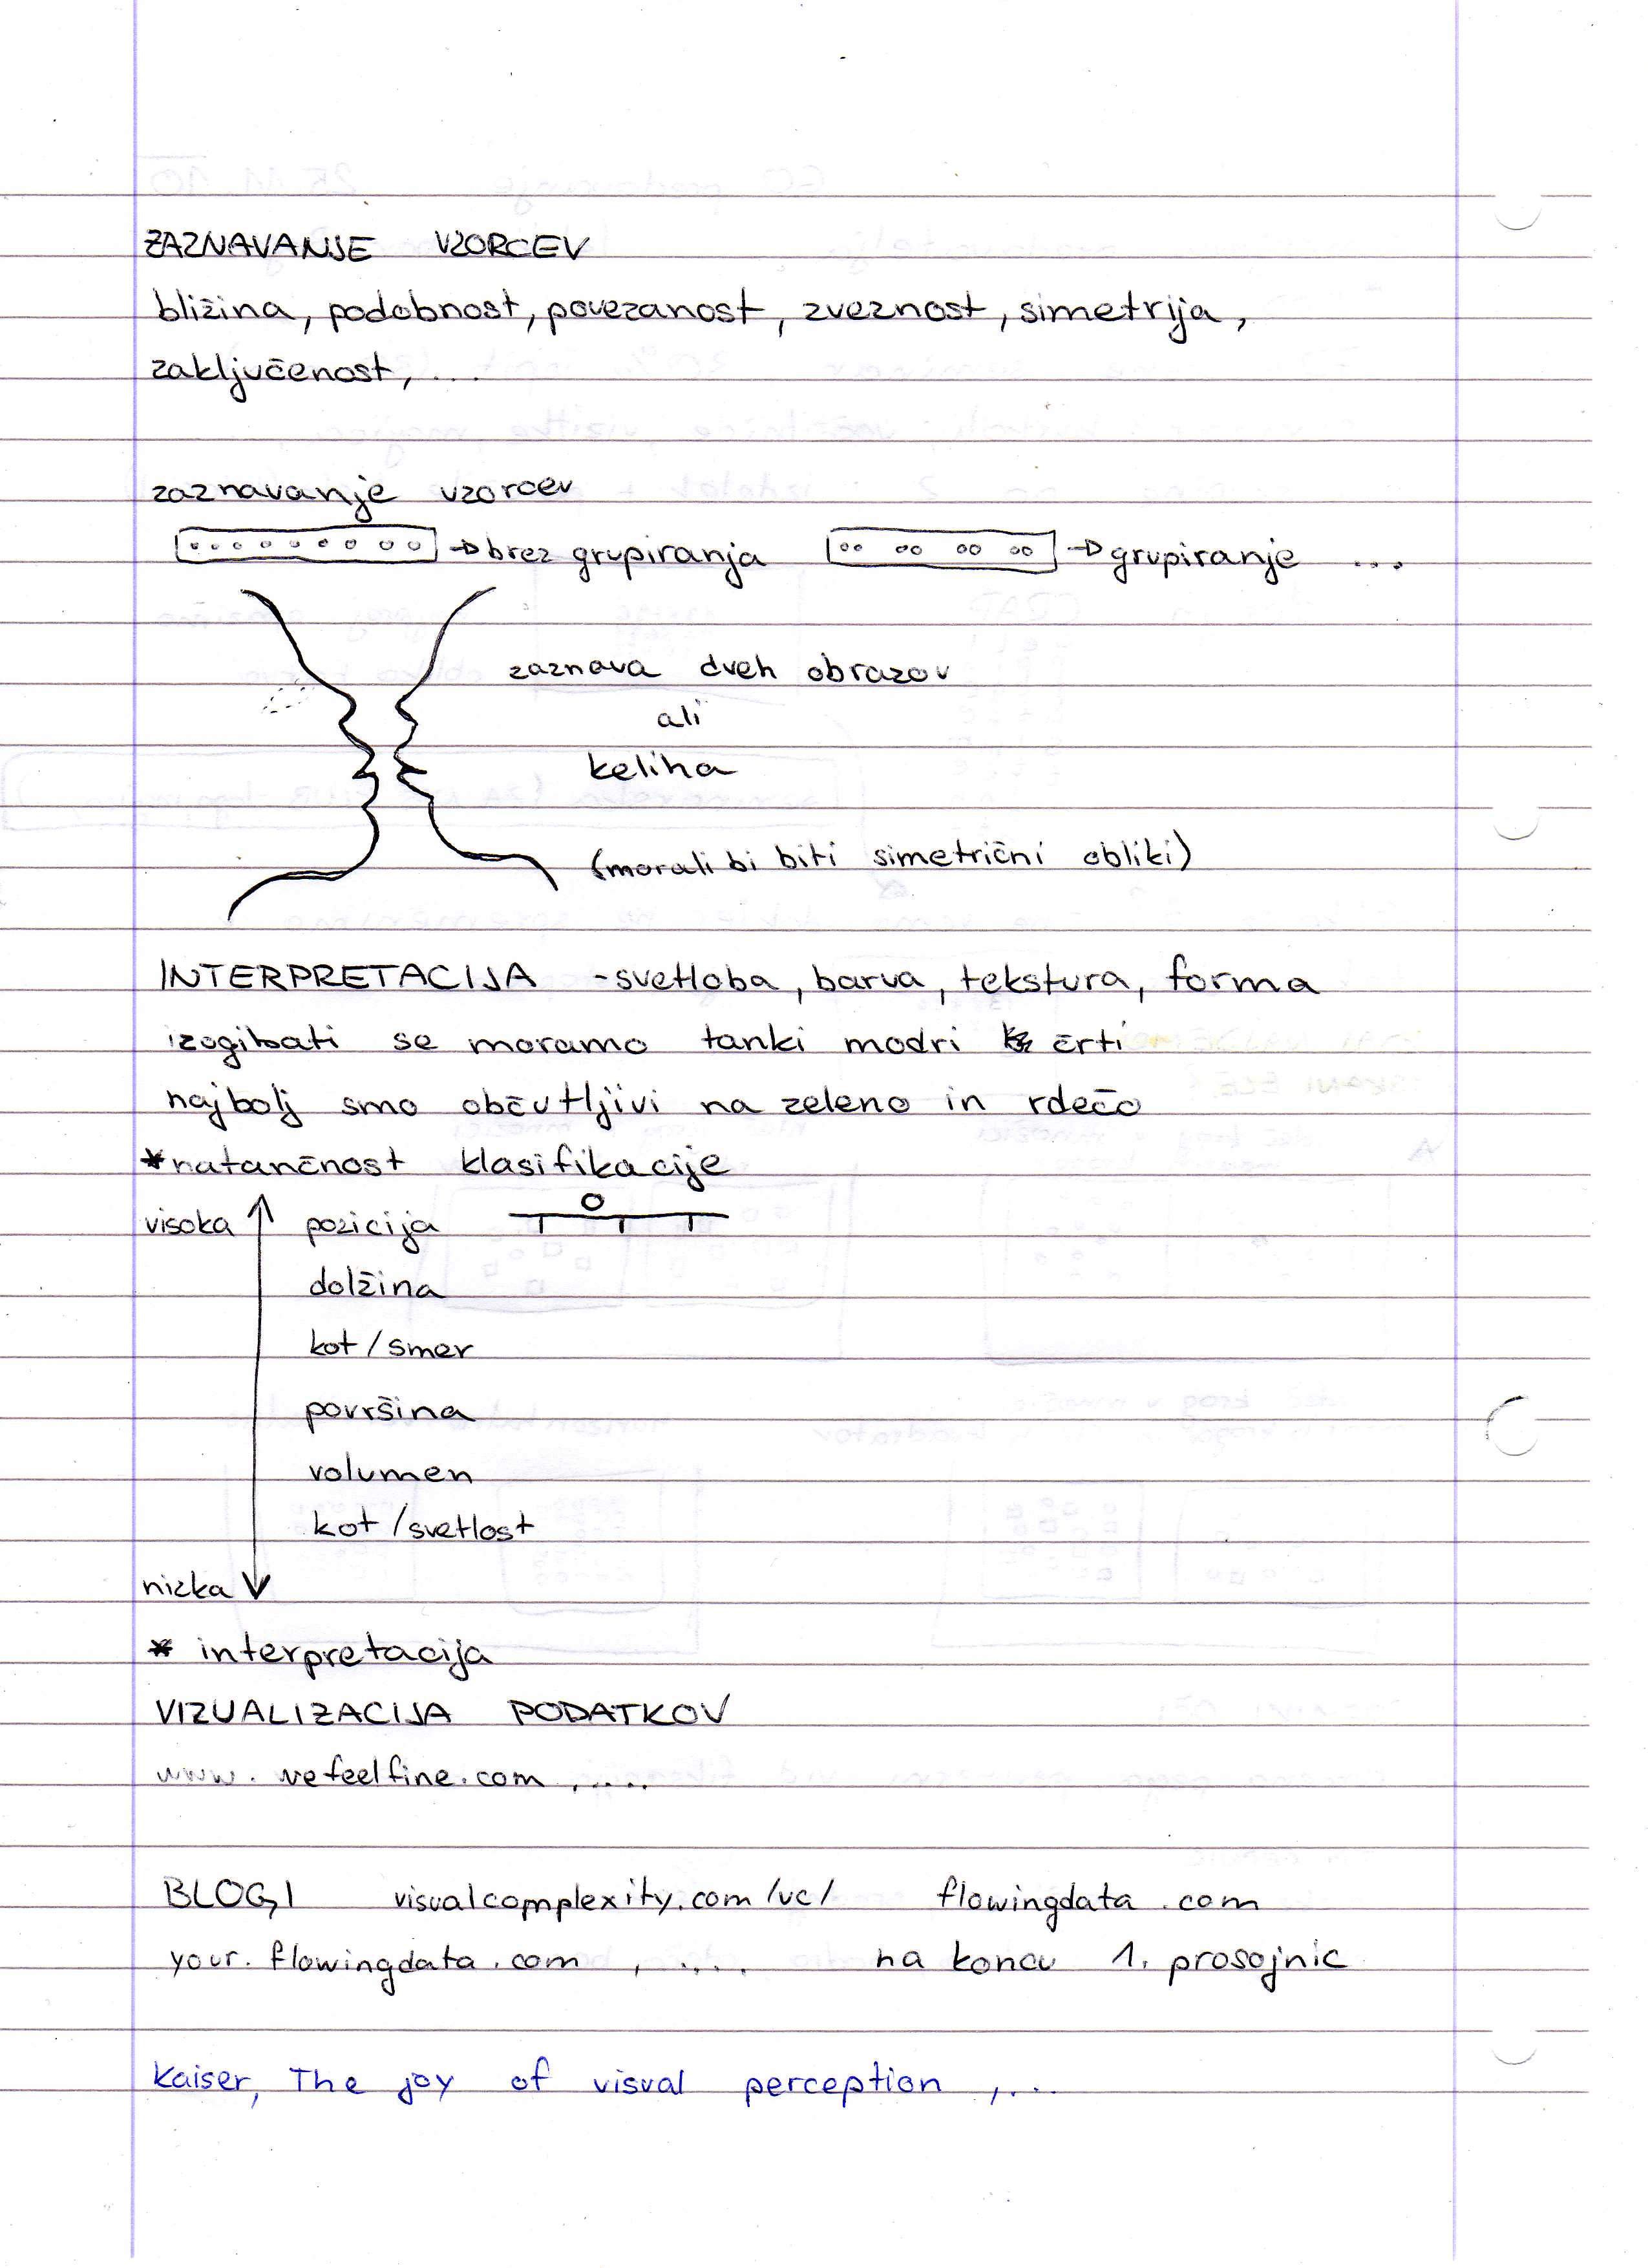 ZAZNAVANJE VZORCEV
bližina, podobnost, povezanost, zveznost, simetrija,
zaključenost, ...
zaznavanje vzorcev
→ brez grupiranja → grupiranje ...
zaznava dveh obrazov
ali
keliha
(morali bi biti simetrični obliki)
INTERPRETACIJA - svetloba, barva, tekstura, forma
izogibati se moramo tanki modri črti
najbolj smo občutljivi na zeleno in rdečo
* natančnost klasifikacije
visoka pozicija
dolžina
kot/smer
površina
volumen
kot/svetlost
nizka
* interpretacija
VIZUALIZACIJA PODATKOV
www.wefeelfine.com , ....
BLOGI visualcomplexity.com/vc/ flowingdata.com
your.flowingdata.com , .... na koncu 1. prosojnic
Kaiser, The joy of visual perception , ...